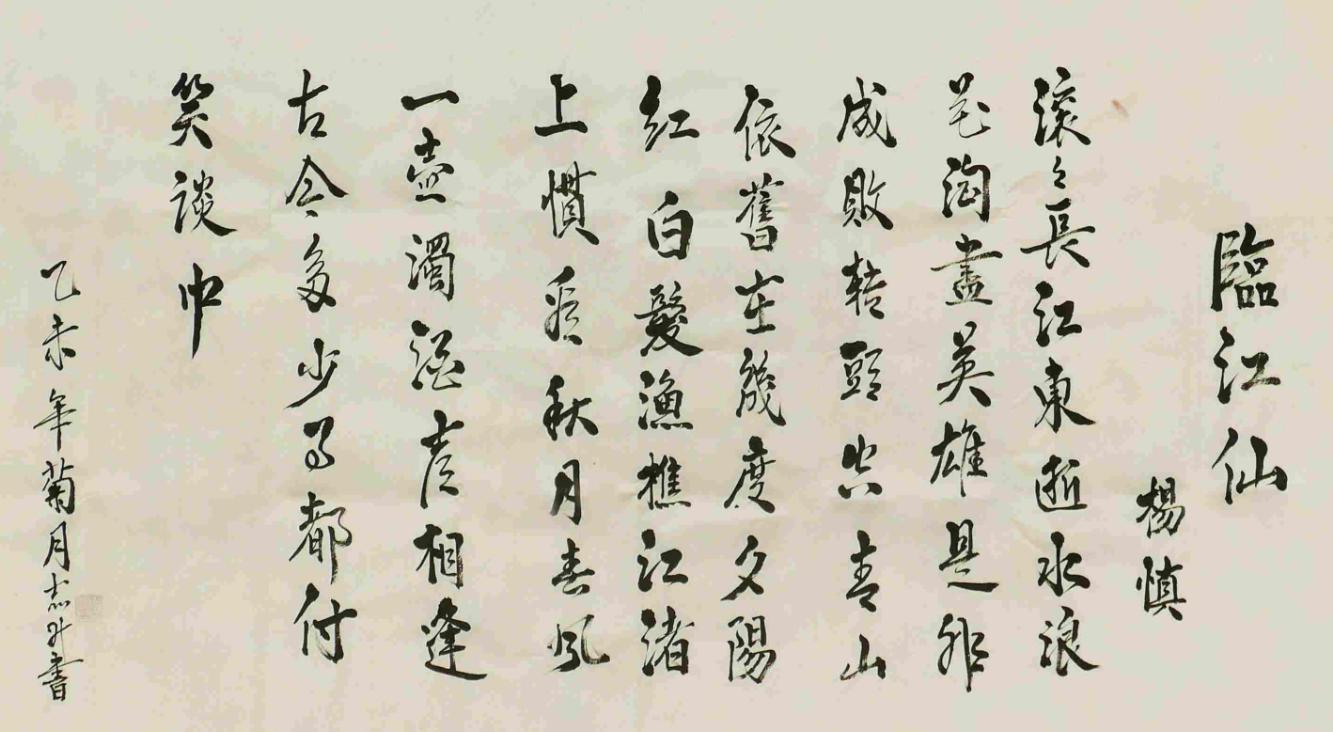 臨江仙
楊慎
滚々長江東逝水浪
花淘盡英雄是非
成敗轉頭空青山
依舊在幾度夕陽
紅白髮漁樵江渚
上慣看秋月春風
一壺濁酒喜相逢
古今多少事都付
笑談中
乙未年菊月志升書